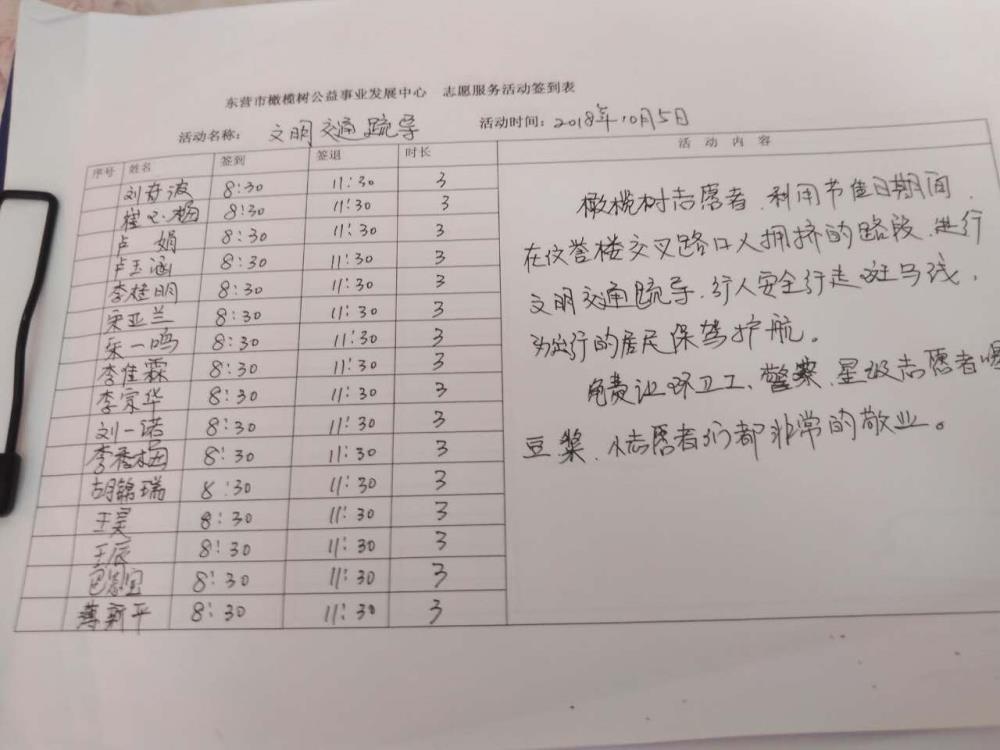 东营市橄榄树公益事业发展中心 志愿服务活动签到表
活动名称: 文明交通疏导 活动时间: 2018年10月5日
序号 姓名 签到 签退 时长 活动内容
8:30 11:30 3
8:30 11:30 3
卢娟 8:30 11:30 3
卢玉涵 8:30 11:30 3
李桂明 8:30 11:30 3
宋亚兰 8:30 11:30 3
宋一鸣 8:30 11:30 3
李佳霖 8:30 11:30 3
李宗华 8:30 11:30 3
刘一诺 8:30 11:30 3
李秀梅 8:30 11:30 3
胡锦瑞 8:30 11:30 3
王昊 8:30 11:30 3
王辰 8:30 11:30 3
8:30 11:30 3
薄新平 8:30 11:30 3
橄榄树志愿者、利用节佳日期间、
在仪誉楼交叉路口人拥挤的路段、进行
文明交通疏导、行人安全行走斑马线,
为出行的居民保驾护航。
免费让环卫工、警察、星级志愿者喝
豆浆、小志愿者们都非常的敬业。